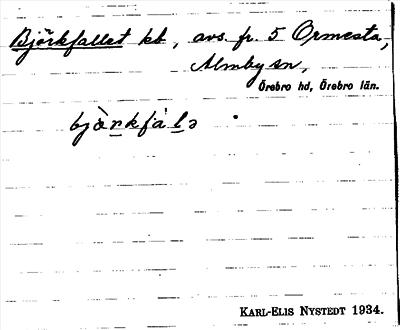 Björkfallet kt, avs. fr. 5 Ormesta,
Almby sn,
Örebro hd, Örebro län.
bjæ̀r̲kfàl̲ə
KARL-ELIS NYSTEDT 1934.